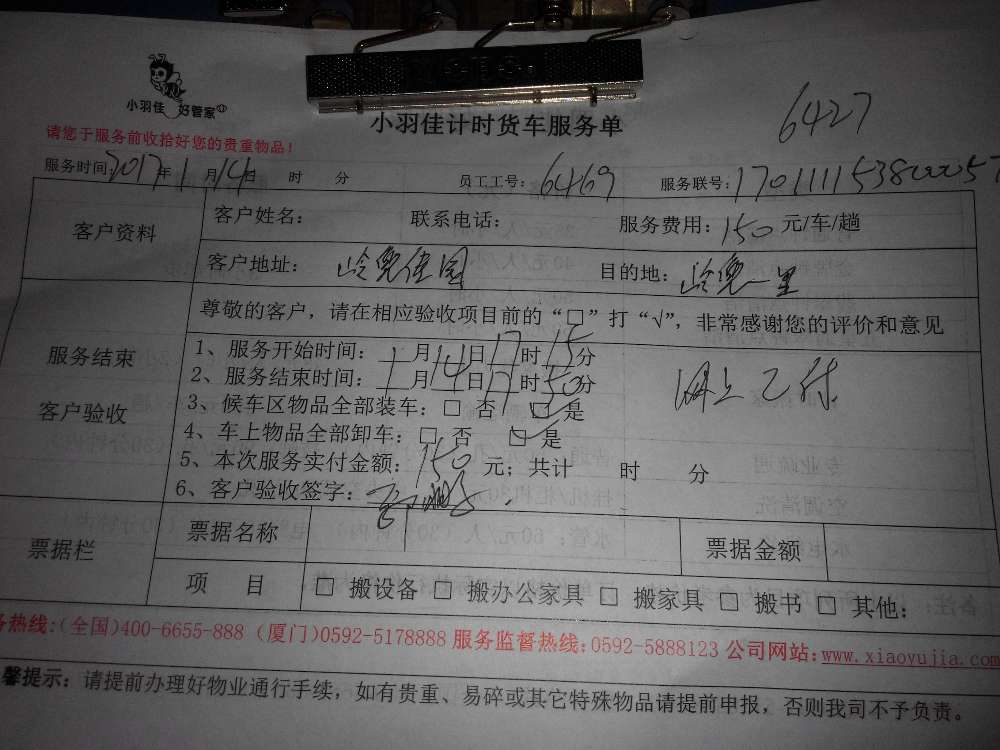 小羽佳 好管家
小羽佳计时货车服务单
6427
请您于服务前收拾好您的贵重物品！
服务时间：2017年1月14日 时 分 员工工号：6469 服务联号：1701111538000057
客户资料
客户姓名： 联系电话： 服务费用：150元/车/趟
客户地址： 岭兜佳园 目的地：岭兜一里
服务结束
客户验收
尊敬的客户，请在相应验收项目前的“□”打“√”，非常感谢您的评价和意见
1、服务开始时间：1月14日17时15分
2、服务结束时间：1月14日17时50分
网上已付
3、候车区物品全部装车：□ 否 □ 是
4、车上物品全部卸车：□ 否 □ 是
5、本次服务实付金额：150元；共计 时 分
6、客户验收签字：
票据栏
票据名称 票据金额
项 目 □ 搬设备 □ 搬办公家具 □ 搬家具 □ 搬书 □ 其他：
务热线:(全国)400-6655-888 (厦门)0592-5178888 服务监督热线：0592-5888123 公司网站：www.xiaoyujia.com
馨提示：请提前办理好物业通行手续，如有贵重、易碎或其它特殊物品请提前申报，否则我司不予负责。